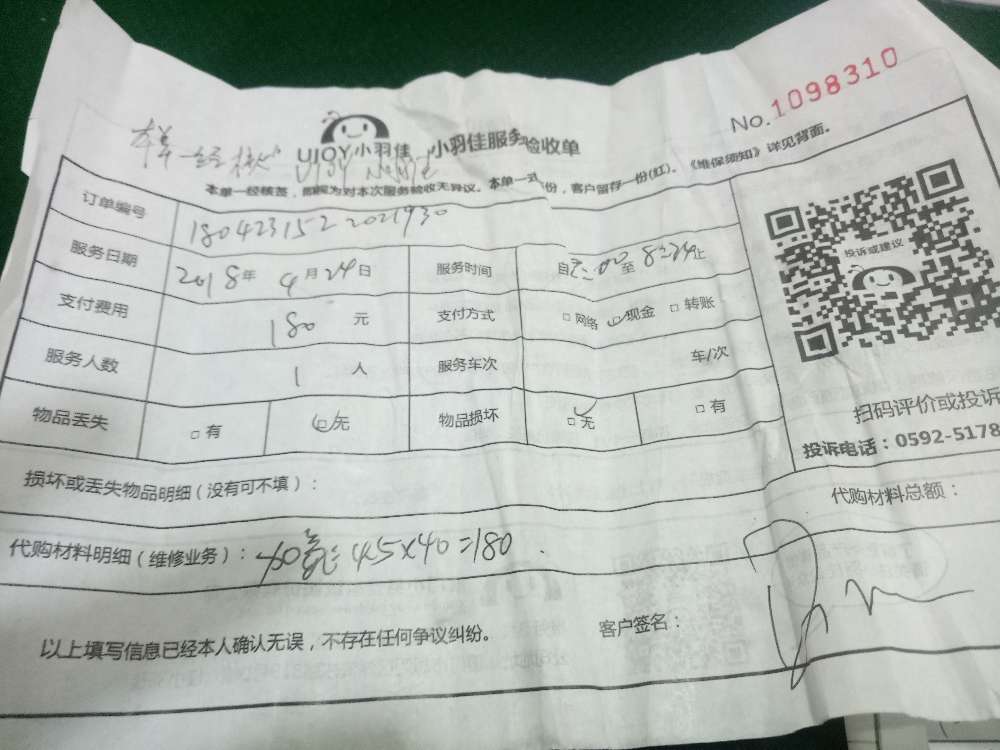 No.1098310
UJOY小羽佳 小羽佳服务验收单
本单一经核签，即视为对本次服务验收无异议。本单一式 份，客户留存一份(红)。《维保须知》详见背面。
订单编号 180423152 2021930
服务日期 2018年 4月24日 服务时间 自 至 止
支付费用 180 元 支付方式 □网络 □现金 □转账
服务人数 1 人 服务车次 车/次
物品丢失 □有 □无 物品损坏 □无 □有
投诉或建议
扫码评价或投诉
投诉电话：0592-5178
损坏或丢失物品明细（没有可不填）：
代购材料总额：
代购材料明细（维修业务）： 4.5×40=180
以上填写信息已经本人确认无误，不存在任何争议纠纷。 客户签名：